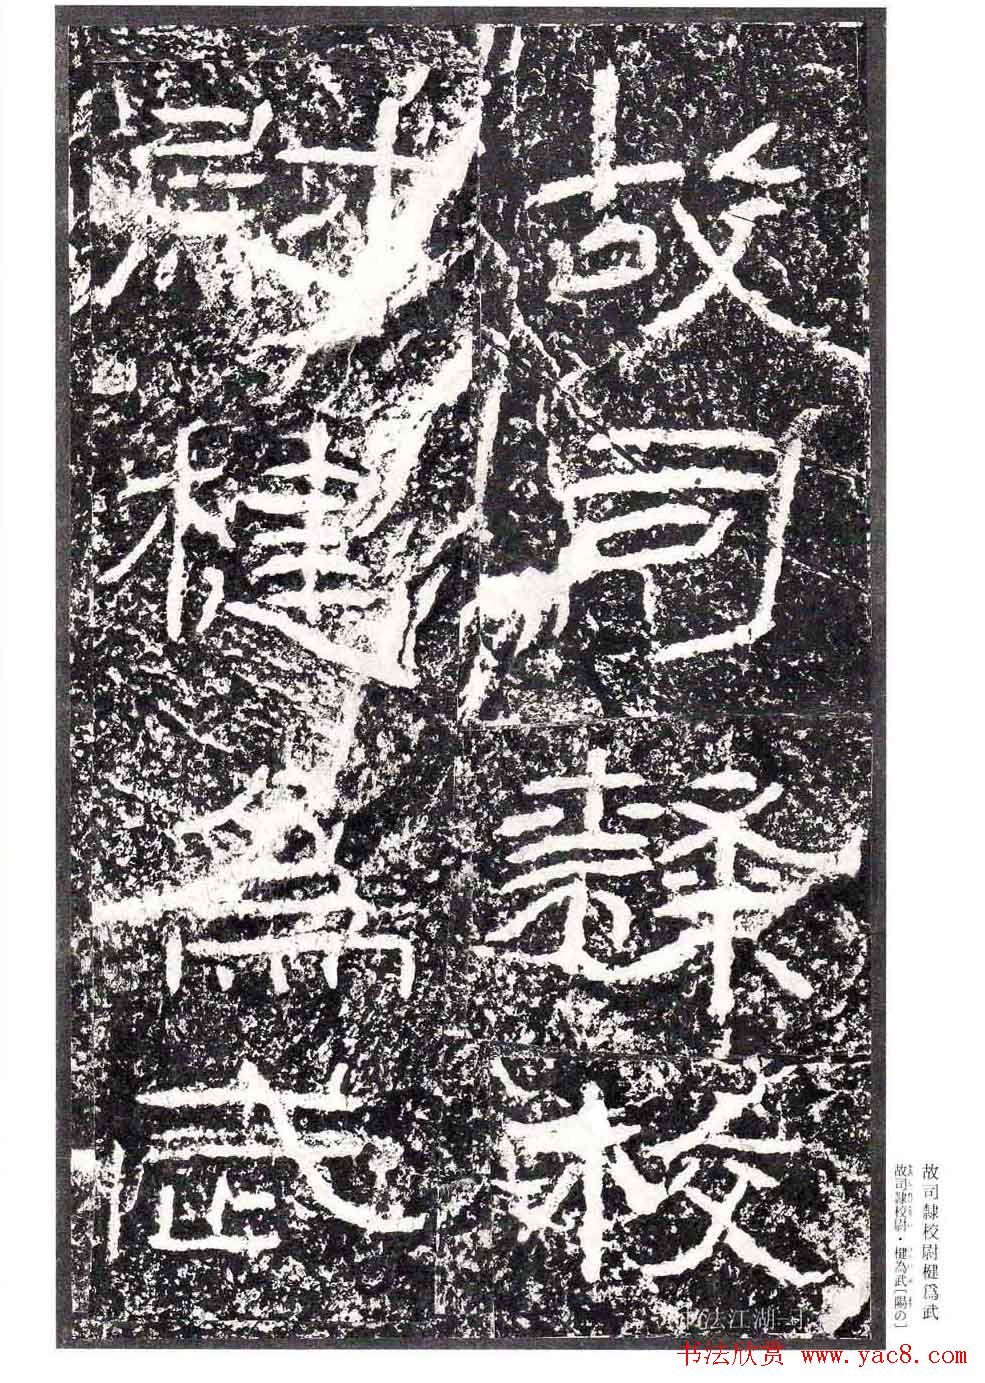 故司隸校
尉楗為武
故司隸校尉楗爲武
故司隸校尉・楗為武〔陽の〕
书法江湖
书法欣赏 www.yac8.com